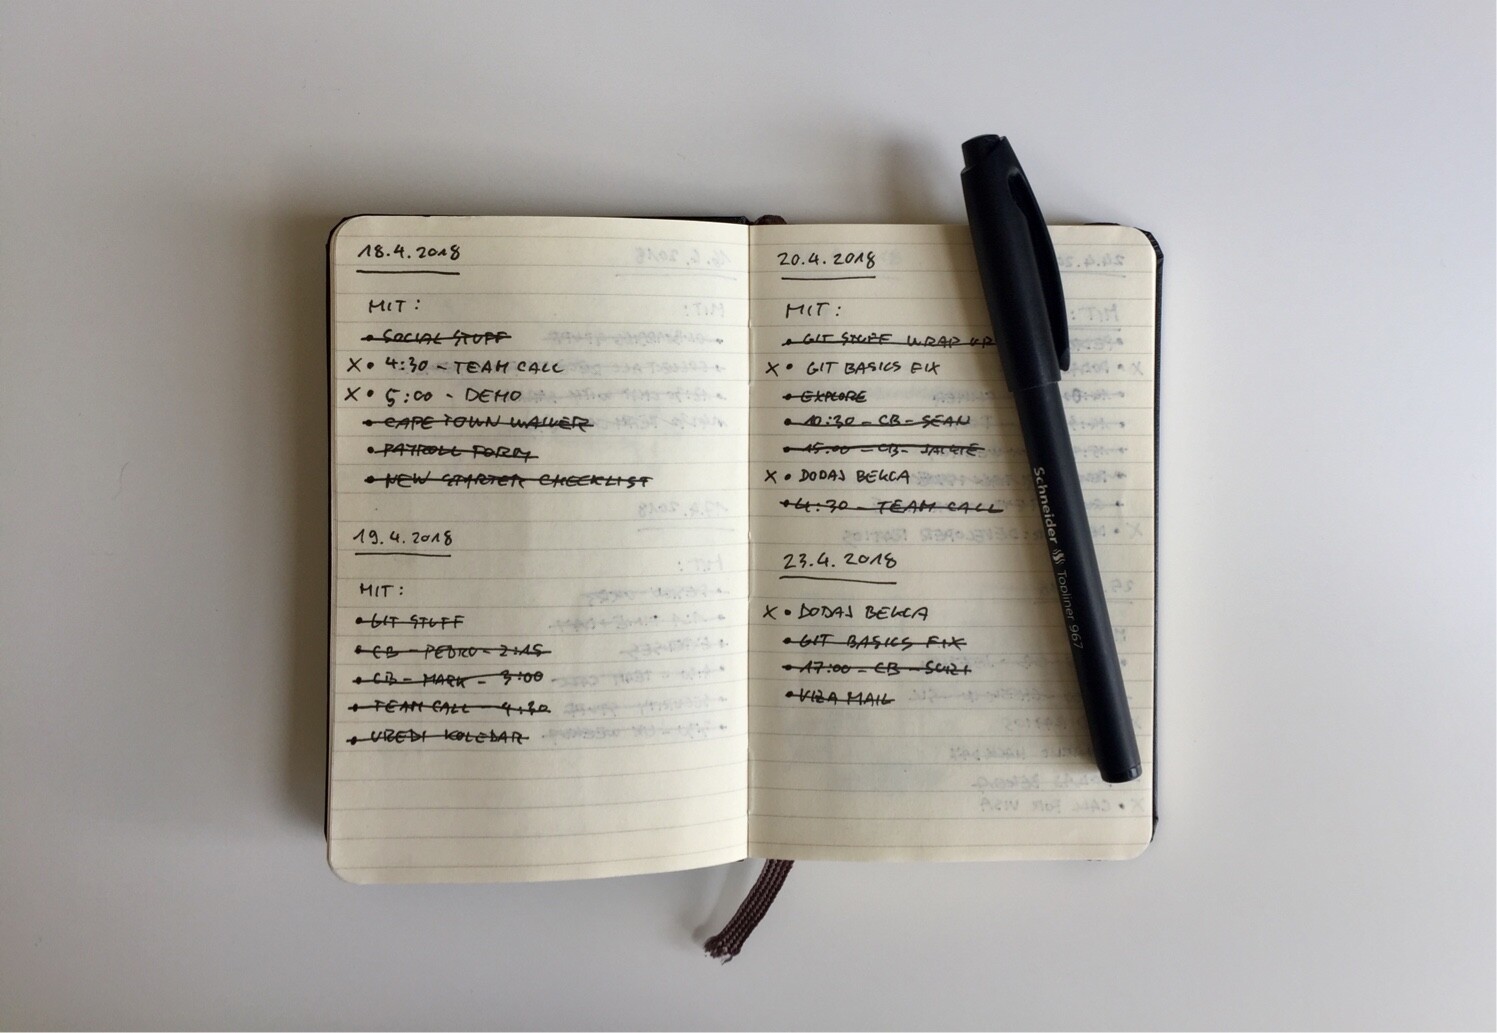 18.4.2018
MIT:
• SOCIAL STUFF
X • 4:30 - TEAM CALL
X • 5:00 - DEMO
• CAPE TOWN WALKER
• PAYROLL FORM
• NEW STARTER CHECKLIST
19.4.2018
MIT:
• GIT STUFF
• CB - PEDRO - 2:15
• CB - MARK - 3:00
• TEAM CALL - 4:30
• UREDI KOLEDAR
20.4.2018
MIT:
• GIT STUFF WRAP UP
X • GIT BASICS FIX
• EXPLORE
• 10:30 - CB - SEAN
• 15:00 - CB - JACKIE
X • DODAJ BEKCA
• 4:30 - TEAM CALL
23.4.2018
X • DODAJ BEKCA
• GIT BASICS FIX
• 17:00 - CB - SUZI
• VIZA MAIL
Schneider Topliner 967